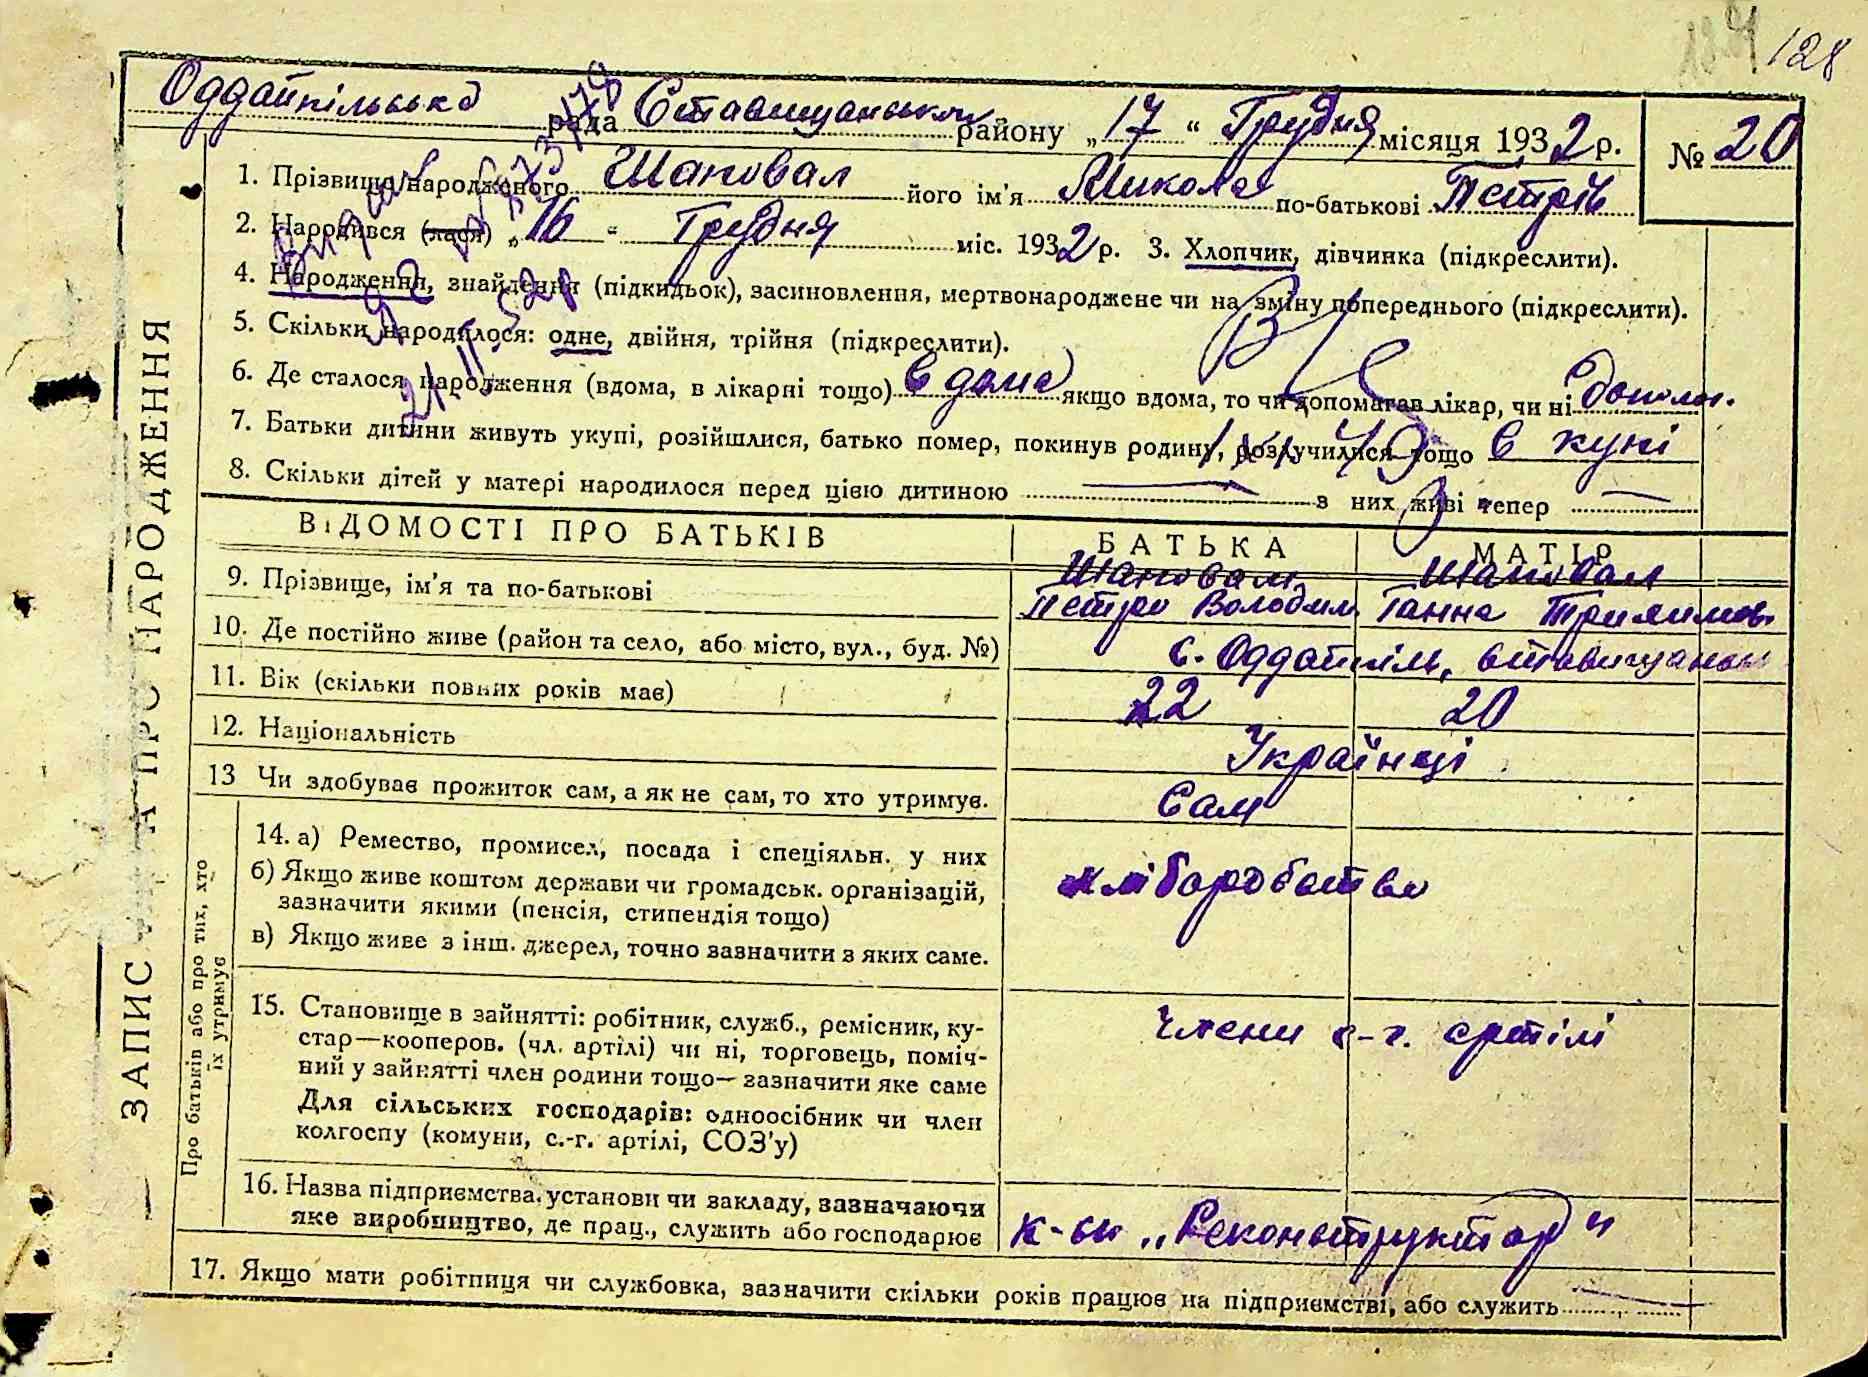 128
Оддайпільська рада Ставищанського району „17“ Грудня місяця 1932 р. № 20
1. Прізвище народженого Шаповал його ім'я Микола по-батькові Петрів
2. Народився (лася) „16“ Грудня міс. 1932 р. 3. Хлопчик, дівчинка (підкреслити).
4. Народження, знайдення (підкидьок), засиновлення, мертвонароджене чи на зміну попереднього (підкреслити).
5. Скільки народилося: одне, двійня, трійня (підкреслити).
6. Де сталося народження (вдома, в лікарні тощо) в дома якщо вдома, то чи допомагав лікар, чи ні
7. Батьки дитини живуть укупі, розійшлися, батько помер, покинув родину, розлучилися тощо в купі
8. Скільки дітей у матері народилося перед цією дитиною — з них живі тепер —
ВІДОМОСТІ ПРО БАТЬКІВ БАТЬКА МАТІР
9. Прізвище, ім'я та по-батькові Шаповал Петро Володим Шаповал Ганна
10. Де постійно живе (район та село, або місто, вул., буд. №) с. Оддайпіль,
11. Вік (скільки повних років має) 22 20
12. Національність Українці
13 Чи здобуває прожиток сам, а як не сам, то хто утримує. Сам
14. а) Ремество, промисел, посада і спеціяльн. у них
б) Якщо живе коштом держави чи громадськ. організацій,
зазначити якими (пенсія, стипендія тощо)
в) Якщо живе з інш. джерел, точно зазначити з яких саме.
хліборобство
15. Становище в зайнятті: робітник, служб., ремісник, ку-
стар—кооперов. (чл. артілі) чи ні, торговець, поміч-
ний у зайнятті член родини тощо— зазначити яке саме
Для сільських господарів: одноосібник чи член
колгоспу (комуни, с.-г. артілі, СОЗ'у)
Члени с-г. артілі
16. Назва підприємства, установи чи закладу, зазначаючи
яке виробництво, де прац., служить або господарює „Реконструктор“
17. Якщо мати робітниця чи службовка, зазначити скільки років працює на підприємстві, або служить —
ЗАПИС АКТА ПРО НАРОДЖЕННЯ
Про батьків або про тих, хто
їх утримує